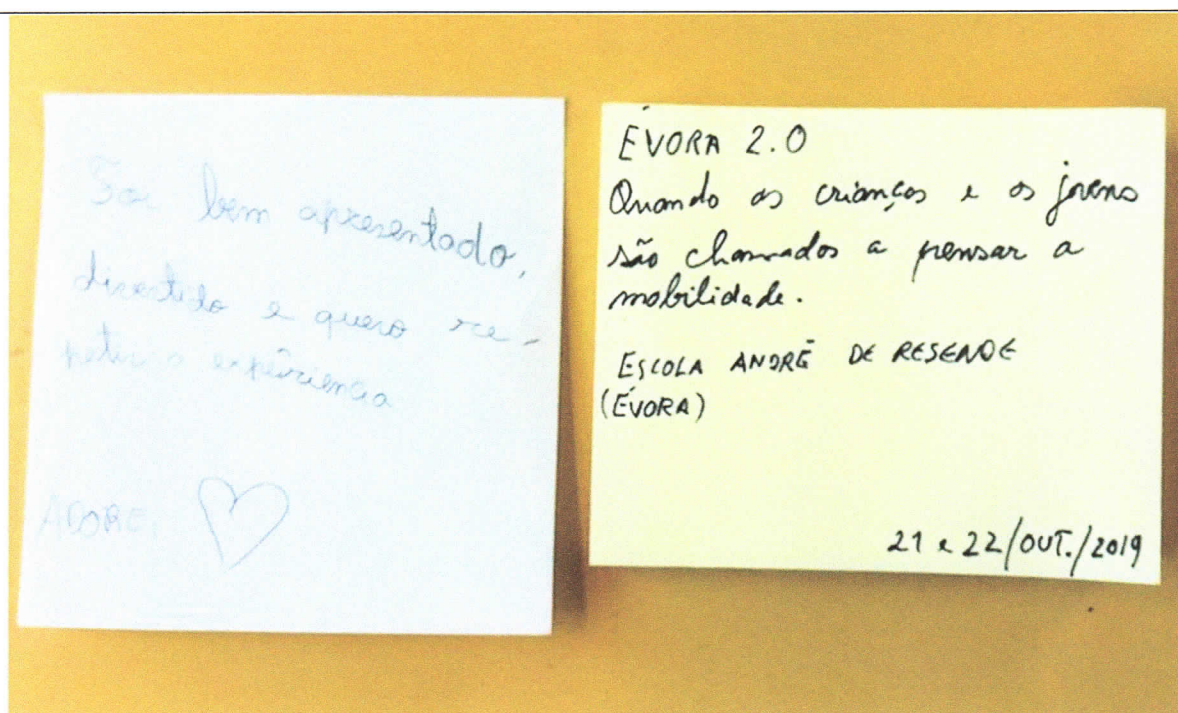 Foi bem apresentado,
divertido e quero re-
petir a expêriencia
ADOREI
ÉVORA 2.0
Quando as crianças e os jovens
são chamados a pensar a
mobilidade.
ESCOLA ANDRÉ DE RESENDE
(ÉVORA)
21 e 22/OUT./2019